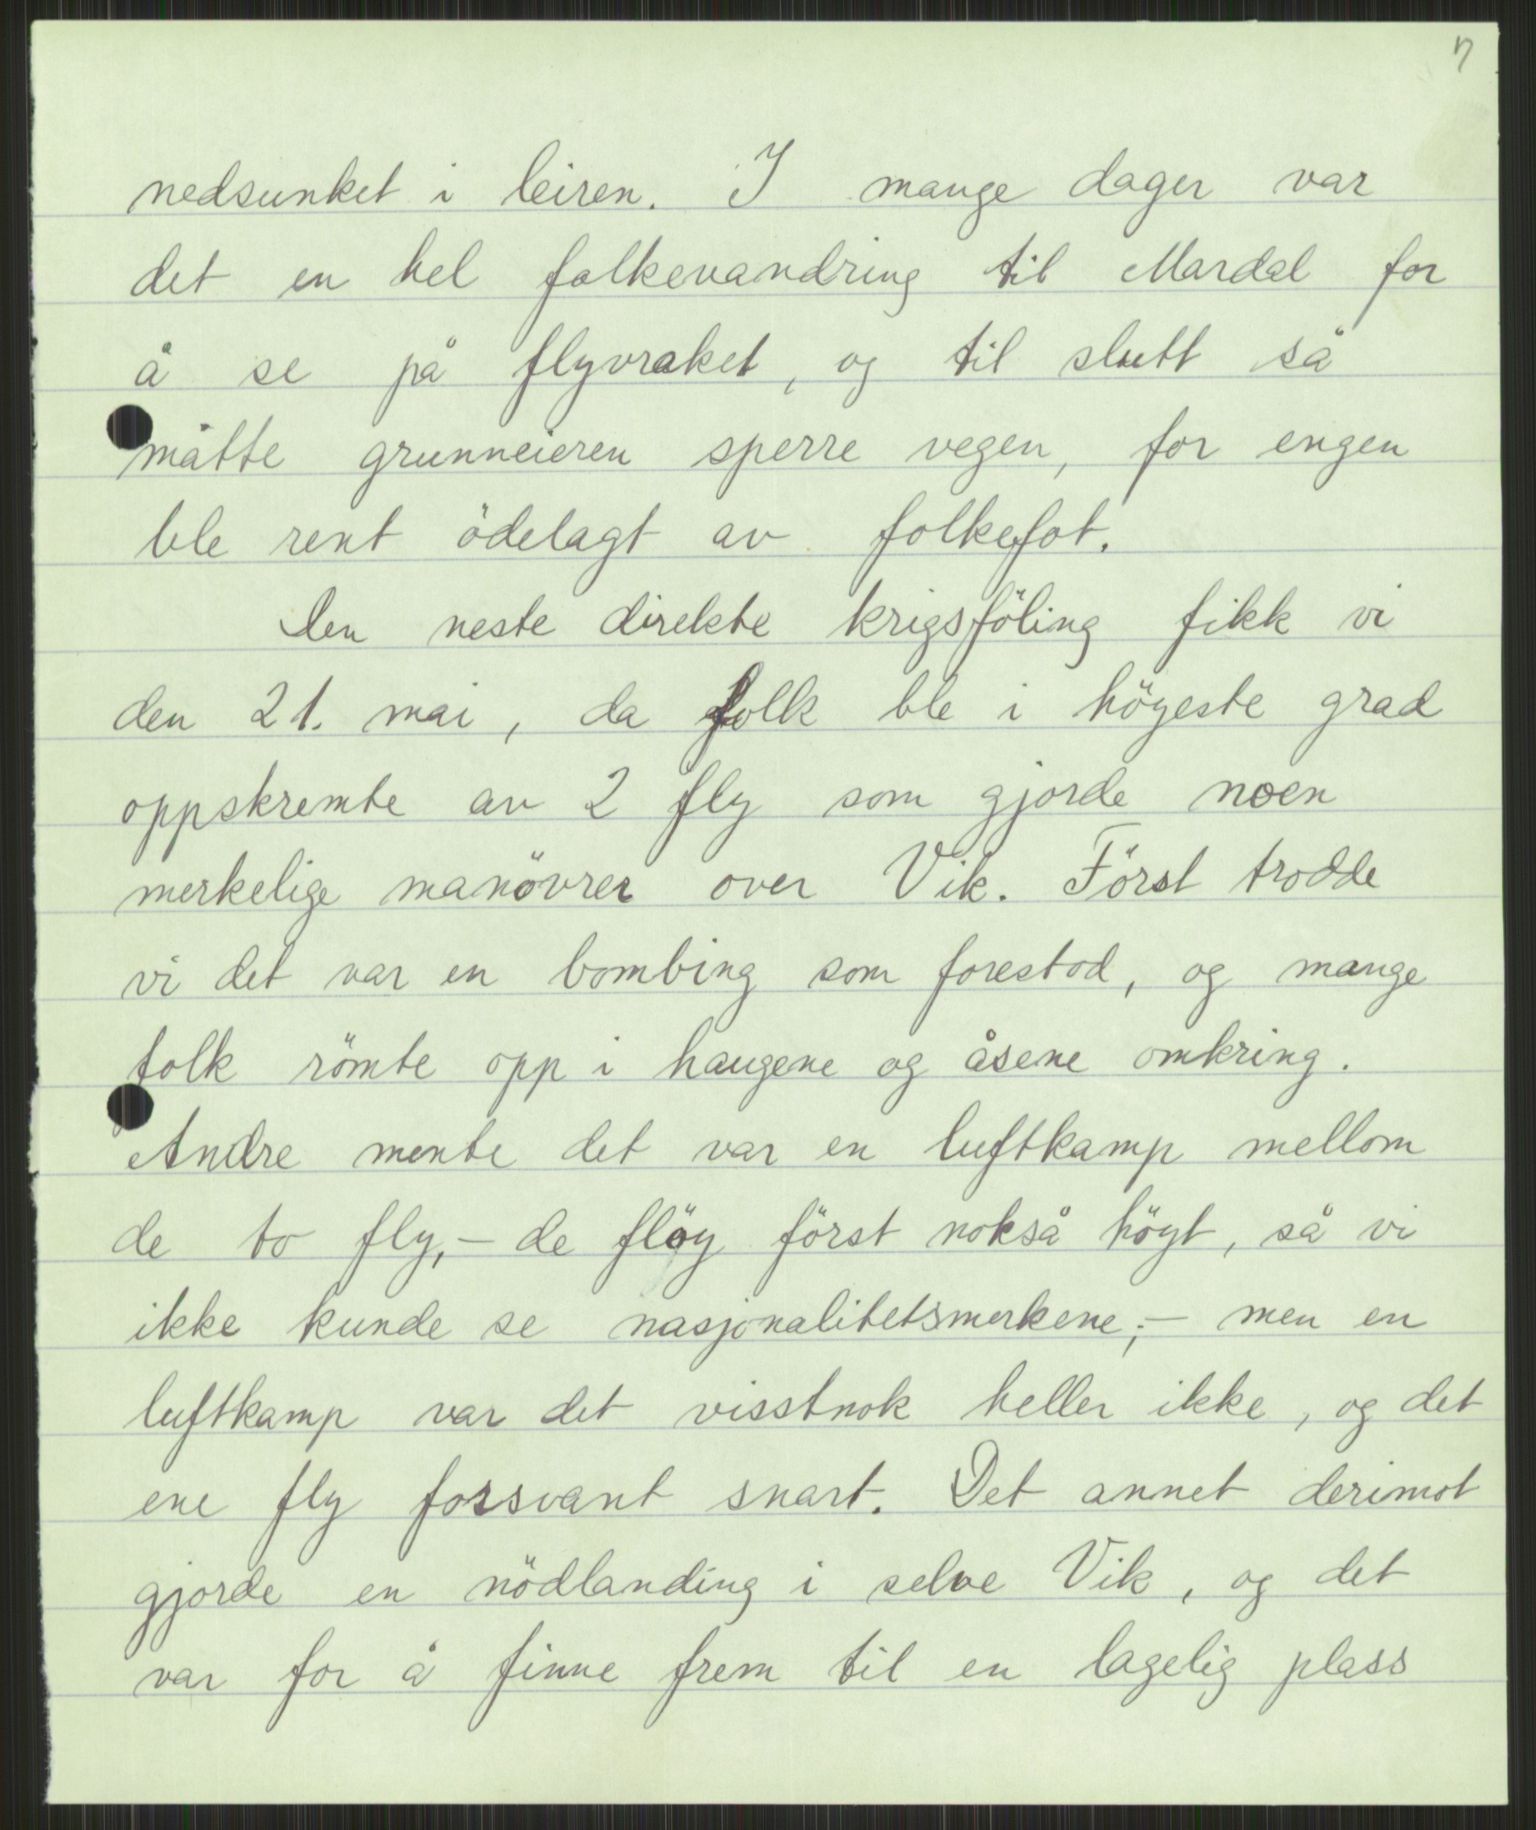 7
nedsunket i leiren. I mange dager var
det en hel folkevandring til Mardal for
å se på flyvraket, og til slutt så
måtte grunneieren sperre vegen, for engen
ble rent ödelagt av folkefot.
Den neste direkte krigsföling fikk vi
den 21. mai, da folk ble i högeste grad
oppskremte av 2 fly som gjorde noen
merkelige manövrer over Vik. Först trodde
vi det var en bombing som forestod, og mange
folk römte opp i haugene og åsene omkring.
Andre mente det var en luftkamp mellom
de to fly, – de flöy först nokså höyt, så vi
ikke kunde se nasjonalitetsmerkene; – men en
luftkamp var det visstnok heller ikke, og det
ene fly forsvant snart. Det annet derimot
gjorde en nödlanding i selve Vik, og det
var for å finne frem til en lagelig plass